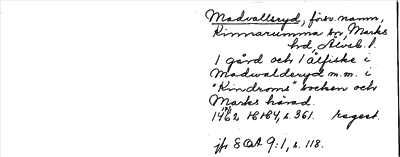 Madvallsryd, försv. namn,
Kinnarumma sn, Marks
hd, Älvsb. l.
1 gård och 1 ålfiske i
Madwaldsryd m.m. i
"Kindroms" socken och
Marks härad.
1462 HH4, s. 361. regest.
jfr SOÄ 9:1, s. 118.